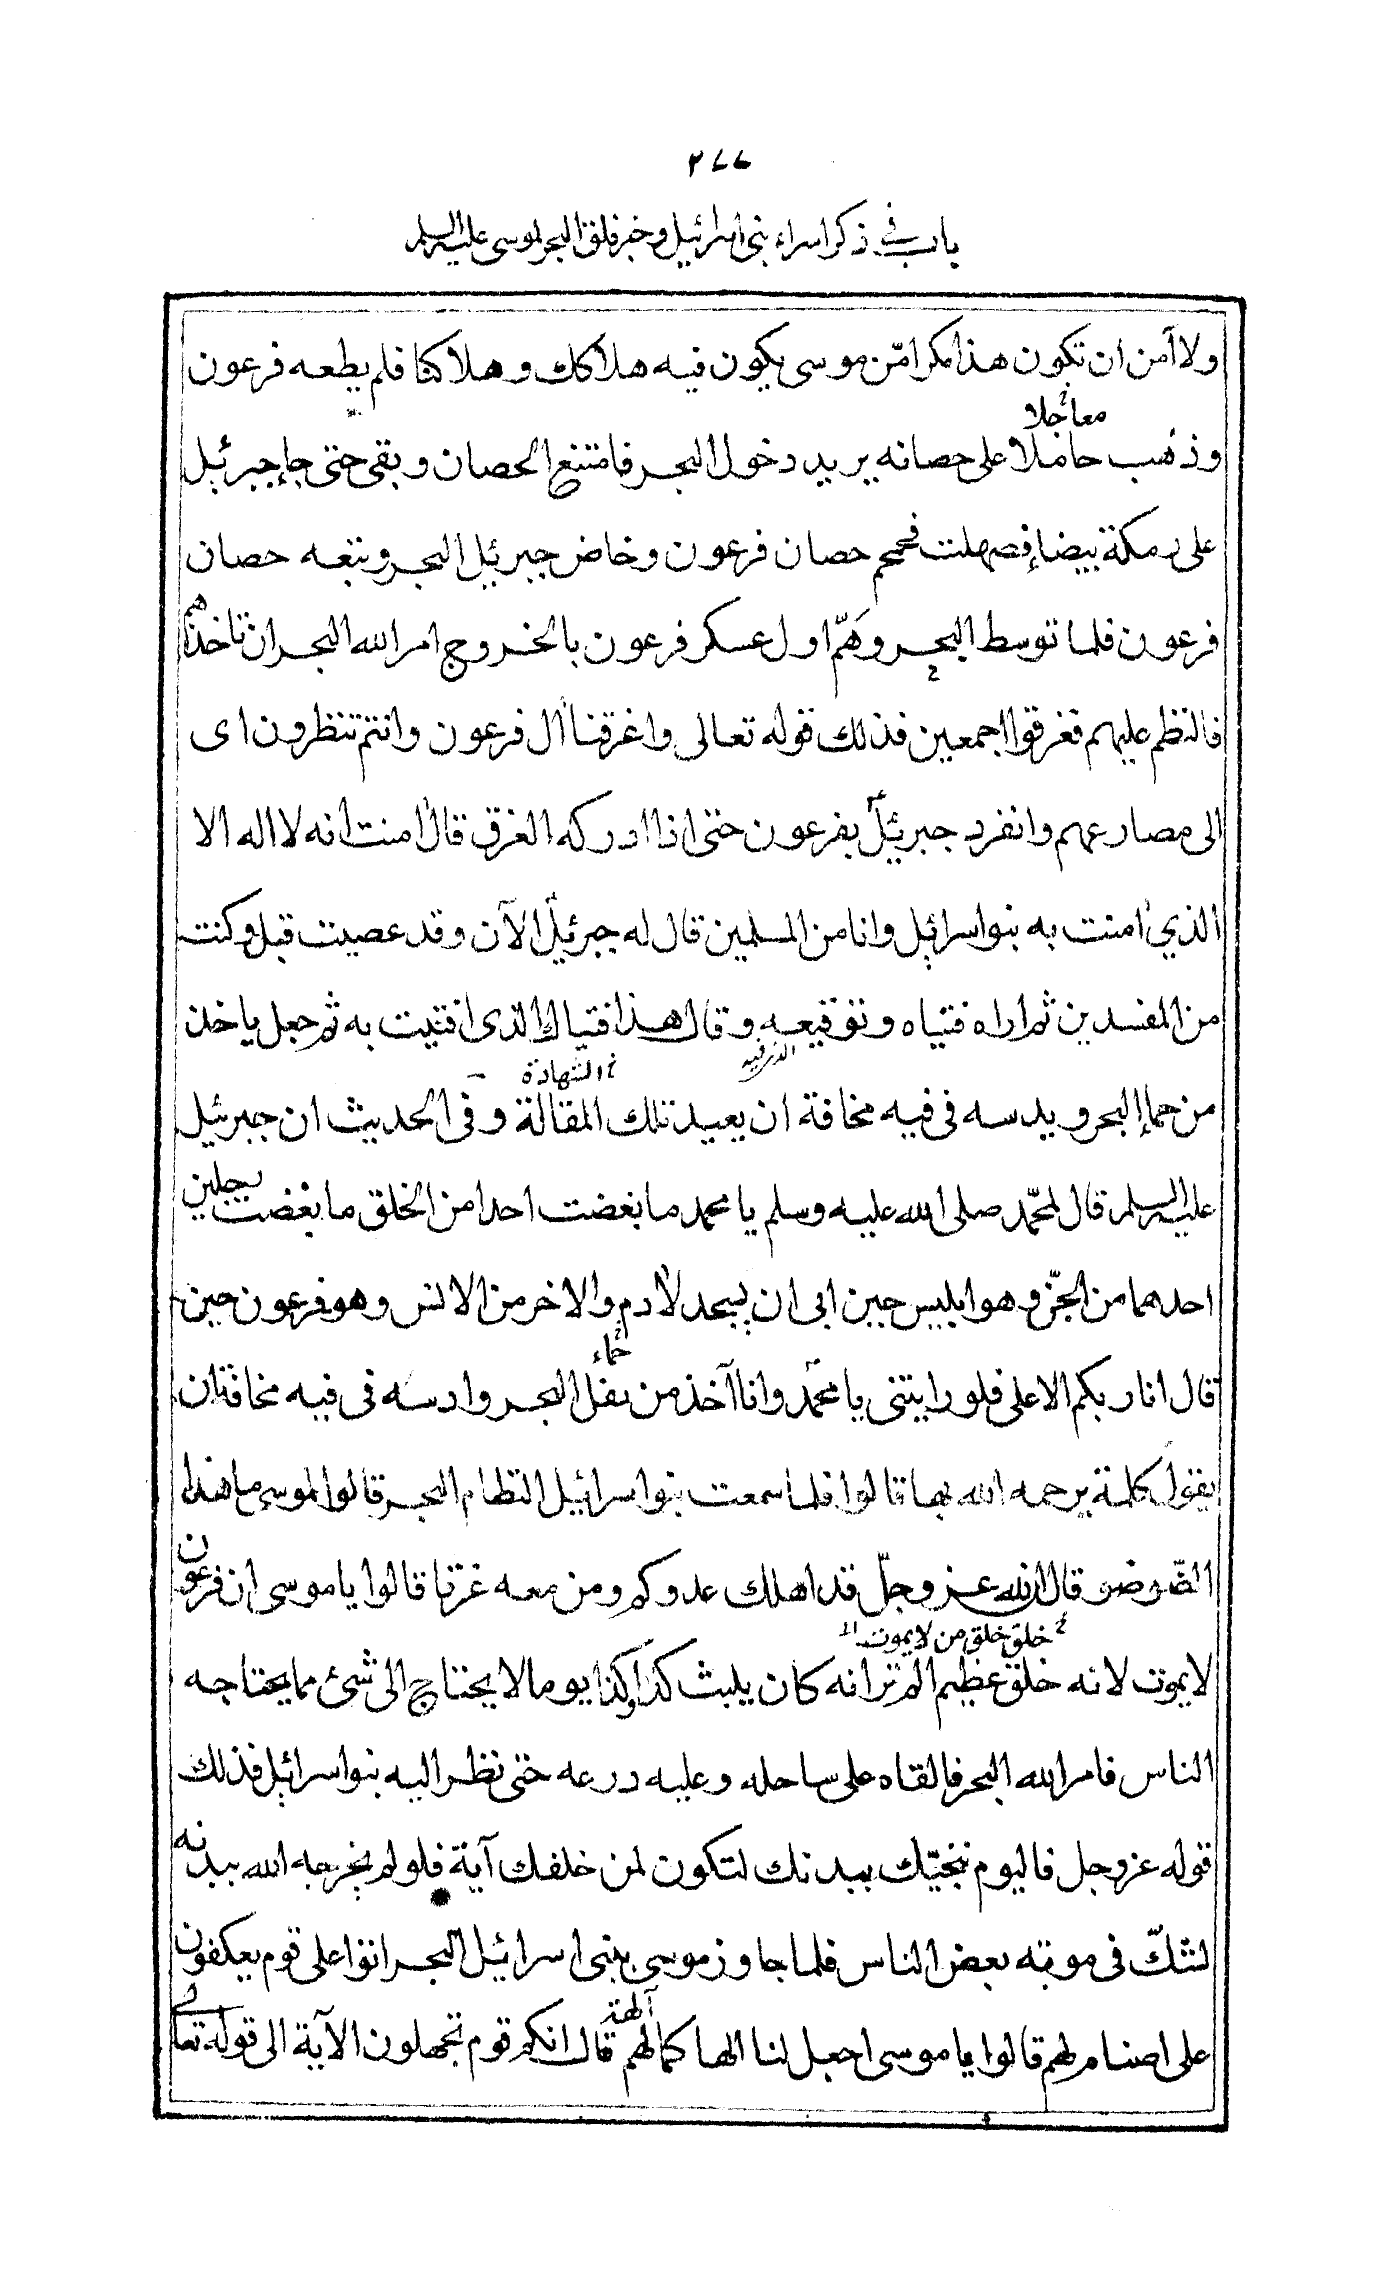 ٢٧٧
باب في ذكر اسراء بنى اسرائيل وخبر فلق البحر لموسى عليه السلم
ولا آمن ان تكون هذا مكرا من موسى يكون فيه هلاكك وهلاكنا فلم يطعه فرعون
معاجلا
وذهب حاملا على حصانه يريد دخول البحر فامتنع الحصان وبقى حتى جاء جبرئيل
على رمكة بيضاء فصهلت فحمحم حصان فرعون وخاض جبرئيل البحر وتبعه حصان
فرعون فلما توسط البحر وهَمّ اول عسكر فرعون بالخروج امر الله البحر ان تاخذهم
فالتظم عليهم فغرقوا اجمعين فذلك قوله تعالى واغرقنا آل فرعون وانتم تنظرون اى
الى مصارعهم وانفرد جبرئيل بفرعون حتى اذا ادركه الغرق قال امنت انه لا اله الا
الذي امنت به بنو اسرائيل وانا من المسلمين قال له جبرئيل الآن وقد عصيت قبل وكنت
من المفسدين ثم اراه فتياه وتوقيعه وقال هذا فتياك الذى افتيت به ثم جعل ياخذ
الشهادة
من حماء البحر ويدسه فى فيه مخافة ان يعيد تلك المقالة وفى الحديث ان جبرئيل
عليه السلم قال لمحمّد صلى الله عليه وسلم يا محمد ما بغضت احدا من الخلق ما بغضت رجلين
احدهما من الجنّ وهو ابليس حين ابى ان يسجد لادم والاخر من الانس وهو فرعون حين
حماء
قال انا ربكم الاعلى فلو رايتنى يا محمّد وانا آخذ من ثفل البحر وادسه فى فيه مخافة ان
يقول كلمة يرحمه الله بها قالوا فلما سمعت بنو اسرائيل التظام البحر قالوا لموسى ما هذا
الضّوضو قال ان الله عز وجلّ قد اهلك عدوكم ومن معه غرقا قالوا يا موسى ان فرعون
خلق خلق من لا يموت
لا يموت لانه خلق عظيم الم تر انه كان يلبث كذا وكذا يوما لا يحتاج الى شئ مما يحتاجه
الناس فامر الله البحر فالقاه على ساحله وعليه درعه حتى نظر اليه بنو اسرائيل فذلك
قوله عز وجل فاليوم ننجيّك ببدنك لتكون لمن خلفك آية فلو لم يخرجه الله ببدنه
لشكّ فى موته بعض الناس فلما جاوز موسى ببنى اسرائيل البحر اتوا على قوم يعكفون
آلهة
على اصنام لهم قالوا يا موسى اجعل لنا الها كما لهم قال انكم قوم تجهلون الآية الى قوله تعالى